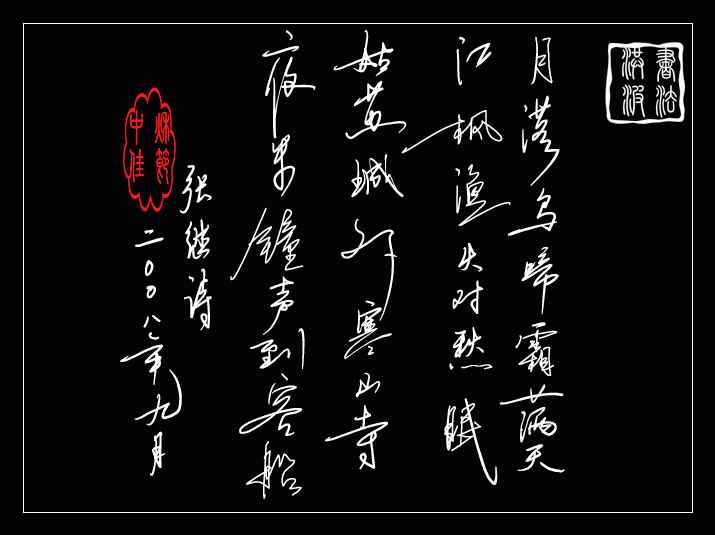 書法
洪波
月落乌啼霜满天
江枫渔火对愁眠
姑苏城外寒山寺
夜半鐘声到客船
张继诗
二00八年九月
中秋
佳節